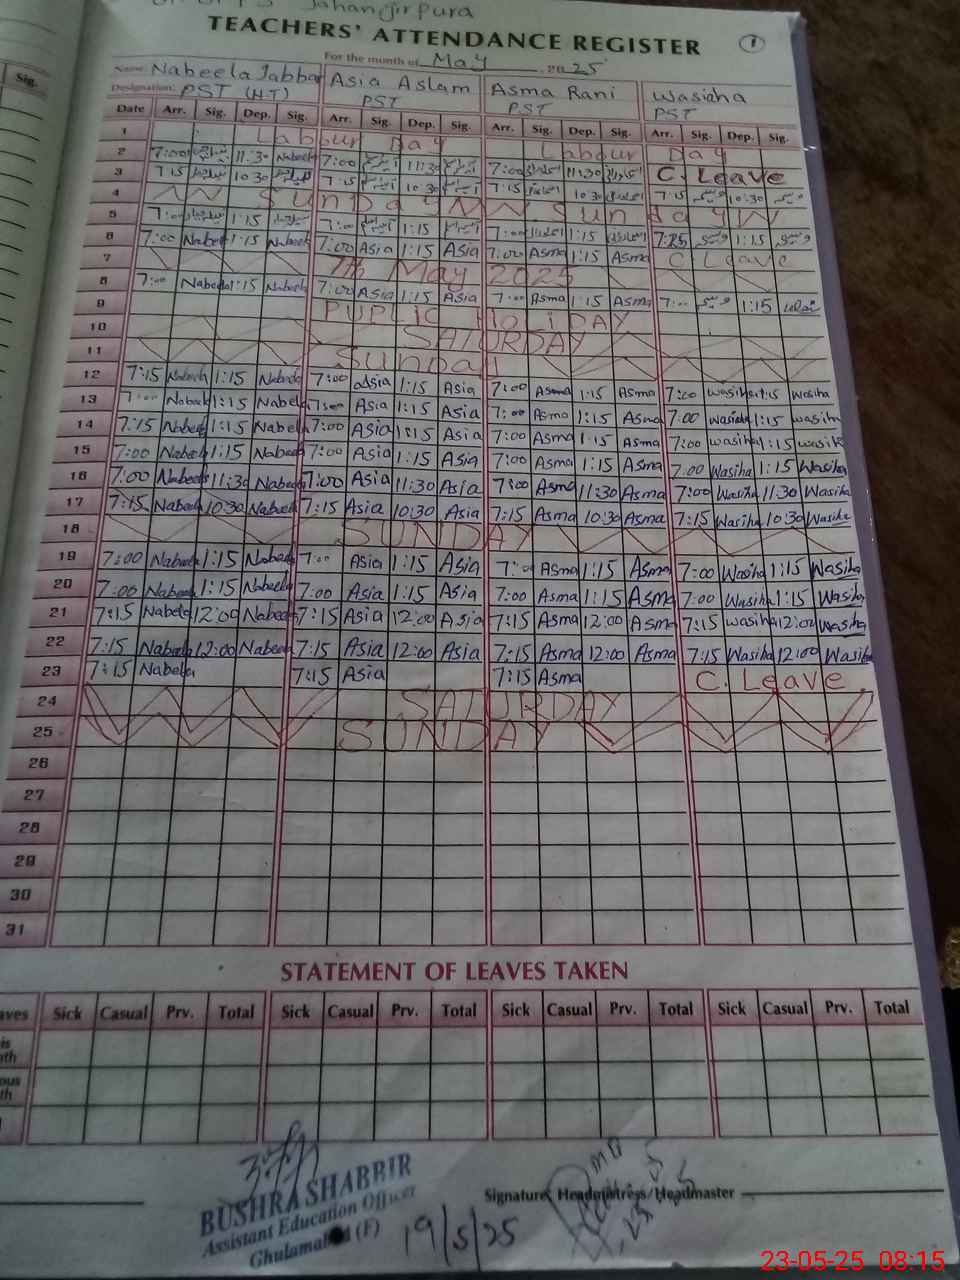 Jahangirpura
TEACHERS' ATTENDANCE REGISTER 1
For the month of May 2025
Name: Nabeela Jabbar Asia Aslam Asma Rani Wasiaha
Designation: PST (H.T) PST PST PST
Date Arr. Sig. Dep. Sig. Arr. Sig. Dep. Sig. Arr. Sig. Dep. Sig. Arr. Sig. Dep. Sig.
1 Labour Day Labour Day
2 7:00 11:30 Nabeela 7:00 11:30 7:00 11:30 C. Leave
3 7:15 10:30 7:15 10:30 7:15 10:30 7:15 10:30
4 Sunday Sunday
5 7:00 1:15 7:00 1:15 7:00 1:15 7:25 1:15
6 7:00 Nabeel 1:15 Nabeela 7:00 Asia 1:15 Asia 7:00 Asma 1:15 Asma C. Leave
7 7th May 2025
8 7:00 Nabeela 1:15 Nabeela 7:00 Asia 1:15 Asia 7:00 Asma 1:15 Asma 7:00 1:15
9 PUPLIC HOLIDAY
10 SATURDAY
11 Sunday
12 7:15 Nabeela 1:15 Nabeela 7:00 Asia 1:15 Asia 7:00 Asma 1:15 Asma 7:00 Wasiha 1:15 Wasiha
13 7:00 Nabeela 1:15 Nabeela 7:00 Asia 1:15 Asia 7:00 Asma 1:15 Asma 7:00 Wasiha 1:15 wasiha
14 7:15 Nabeela 1:15 Nabeela 7:00 Asia 1:15 Asia 7:00 Asma 1:15 Asma 7:00 wasiha 1:15 wasih
15 7:00 Nabeela 1:15 Nabeela 7:00 Asia 1:15 Asia 7:00 Asma 1:15 Asma 7:00 Wasiha 1:15 Wasiha
16 7:00 Nabeela 11:30 Nabeela 7:00 Asia 11:30 Asia 7:00 Asma 11:30 Asma 7:00 Wasiha 11:30 Wasiha
17 7:15 Nabeela 10:30 Nabeela 7:15 Asia 10:30 Asia 7:15 Asma 10:30 Asma 7:15 Wasiha 10:30 Wasiha
18 SUNDAY
19 7:00 Nabeela 1:15 Nabeela 7:00 Asia 1:15 Asia 7:00 Asma 1:15 Asma 7:00 Wasiha 1:15 Wasiha
20 7:00 Nabeela 1:15 Nabeela 7:00 Asia 1:15 Asia 7:00 Asma 1:15 Asma 7:00 Wasiha 1:15 Wasiha
21 7:15 Nabeela 12:00 Nabeela 7:15 Asia 12:00 Asia 7:15 Asma 12:00 Asma 7:15 wasiha 12:00 Wasiha
22 7:15 Nabeela 12:00 Nabeela 7:15 Asia 12:00 Asia 7:15 Asma 12:00 Asma 7:15 Wasiha 12:00 Wasiha
23 7:15 Nabeela 7:15 Asia 7:15 Asma C. Leave
24 SATURDAY
25 SUNDAY
26
27
28
29
30
31
STATEMENT OF LEAVES TAKEN
Sick Casual Prv. Total Sick Casual Prv. Total Sick Casual Prv. Total Sick Casual Prv. Total
Signature, Headmistress/Headmaster
BUSHRA SHABBIR
Assistant Education Officer
(F)
19/5/25
23-05-25 08:15